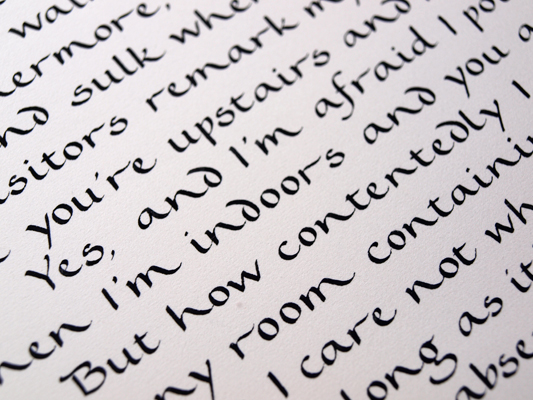 wal
ermore,
nd sulk when
isitors remark m
you're upstairs and
Yes, and I'm afraid I po
hen I'm indoors and you a
But how contentedly I
ny room containi
I care not wh
long as it
abse